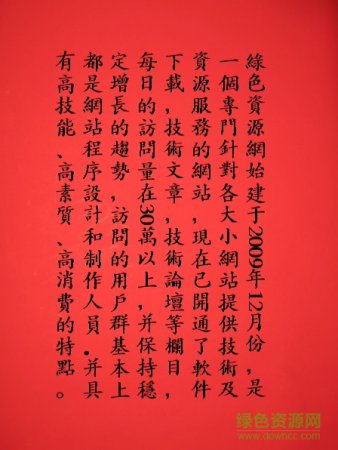 綠色資源網始建于2009年12月份,是
一個專門針對各大小網站提供技術及
資源服務的網站,現在已開通了軟件
下載,技術文章,技術論壇等欄目,
每日的訪問量在30萬以上,并保持穩
定增長的趨勢,訪問的用戶群基本上
都是網站程序設計和制作人員.并具
有高技能、高素質、高消費的特點。
绿色资源网
www.downcc.com